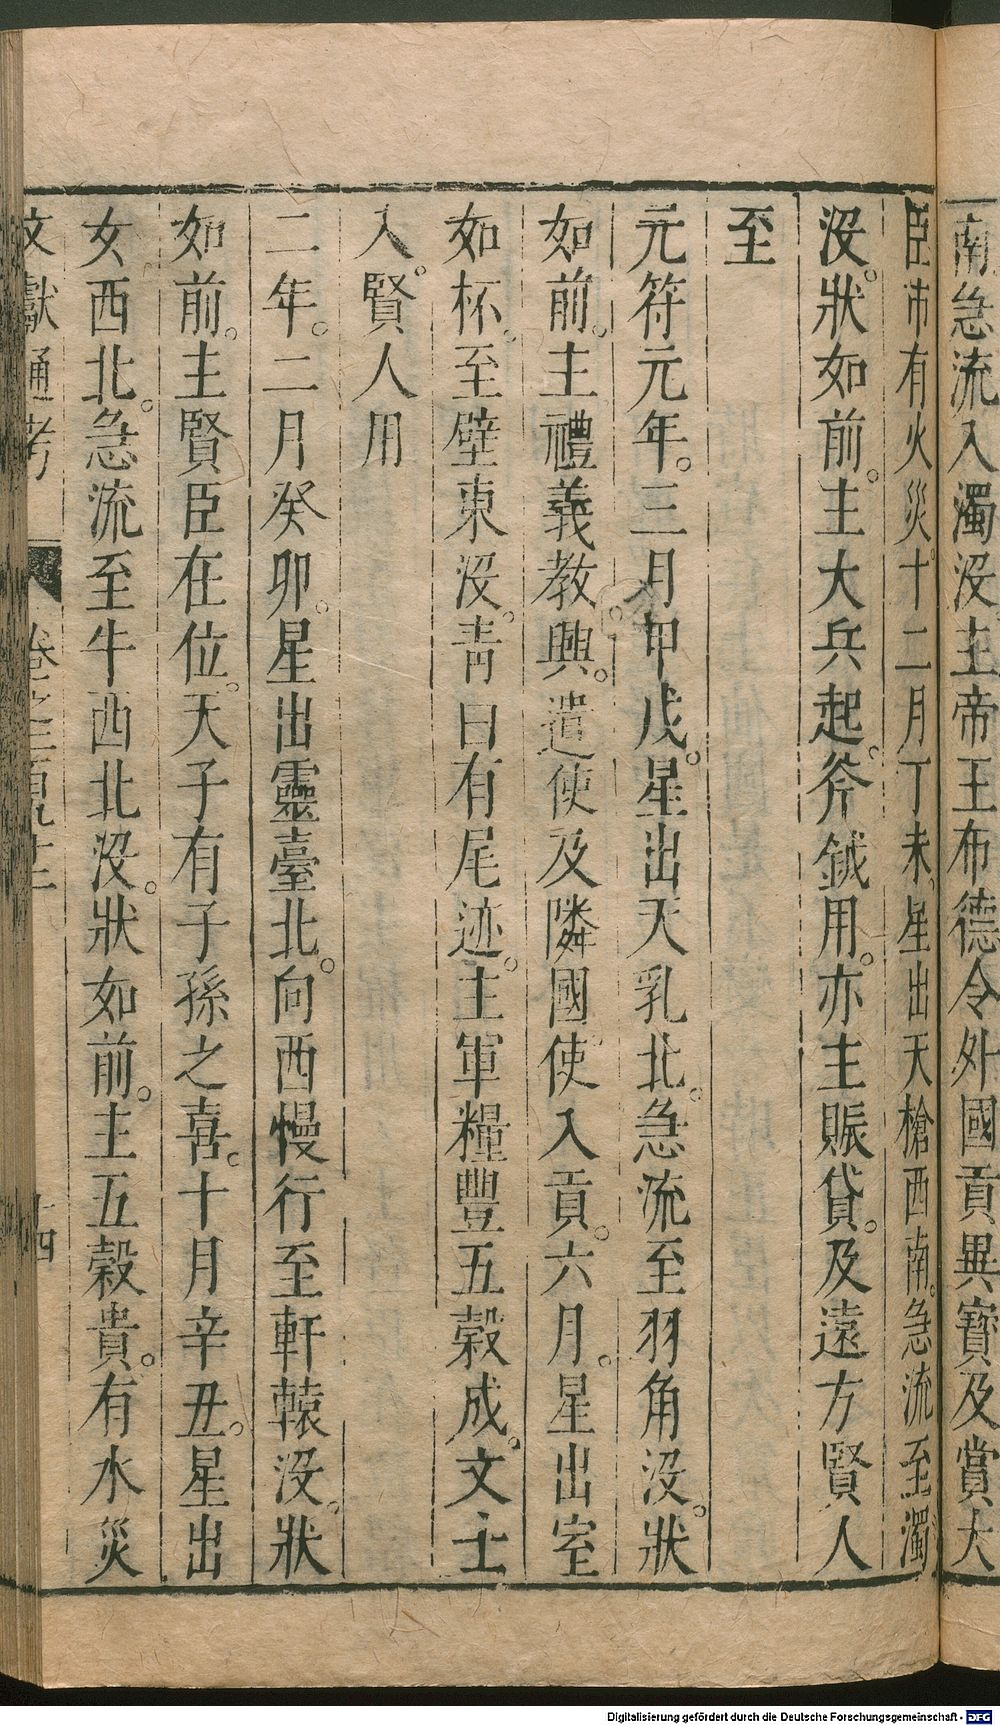 南急流入濁没主帝王布德令外國貢異寳及賞大
臣市有火災十二月丁未星出天槍西南急流至濁
没狀如前主大兵起斧鉞用亦主賑貸及遠方賢人
至
元符元年三月甲戌星出天乳北急流至羽角没狀
如前主禮義教興遣使及隣國使入貢六月星出室
如杯至壁東没青白有尾迹主軍糧豐五穀成文士
入賢人用
二年二月癸卯星出靈臺北向西慢行至軒轅没狀
如前主賢臣在位天子有子孫之喜十月辛丑星出
女西北急流至牛西北没狀如前主五穀貴有水災
文獻通考 卷之二百九十二 十四
Digitalisierung gefördert durch die Deutsche Forschungsgemeinschaft - DFG